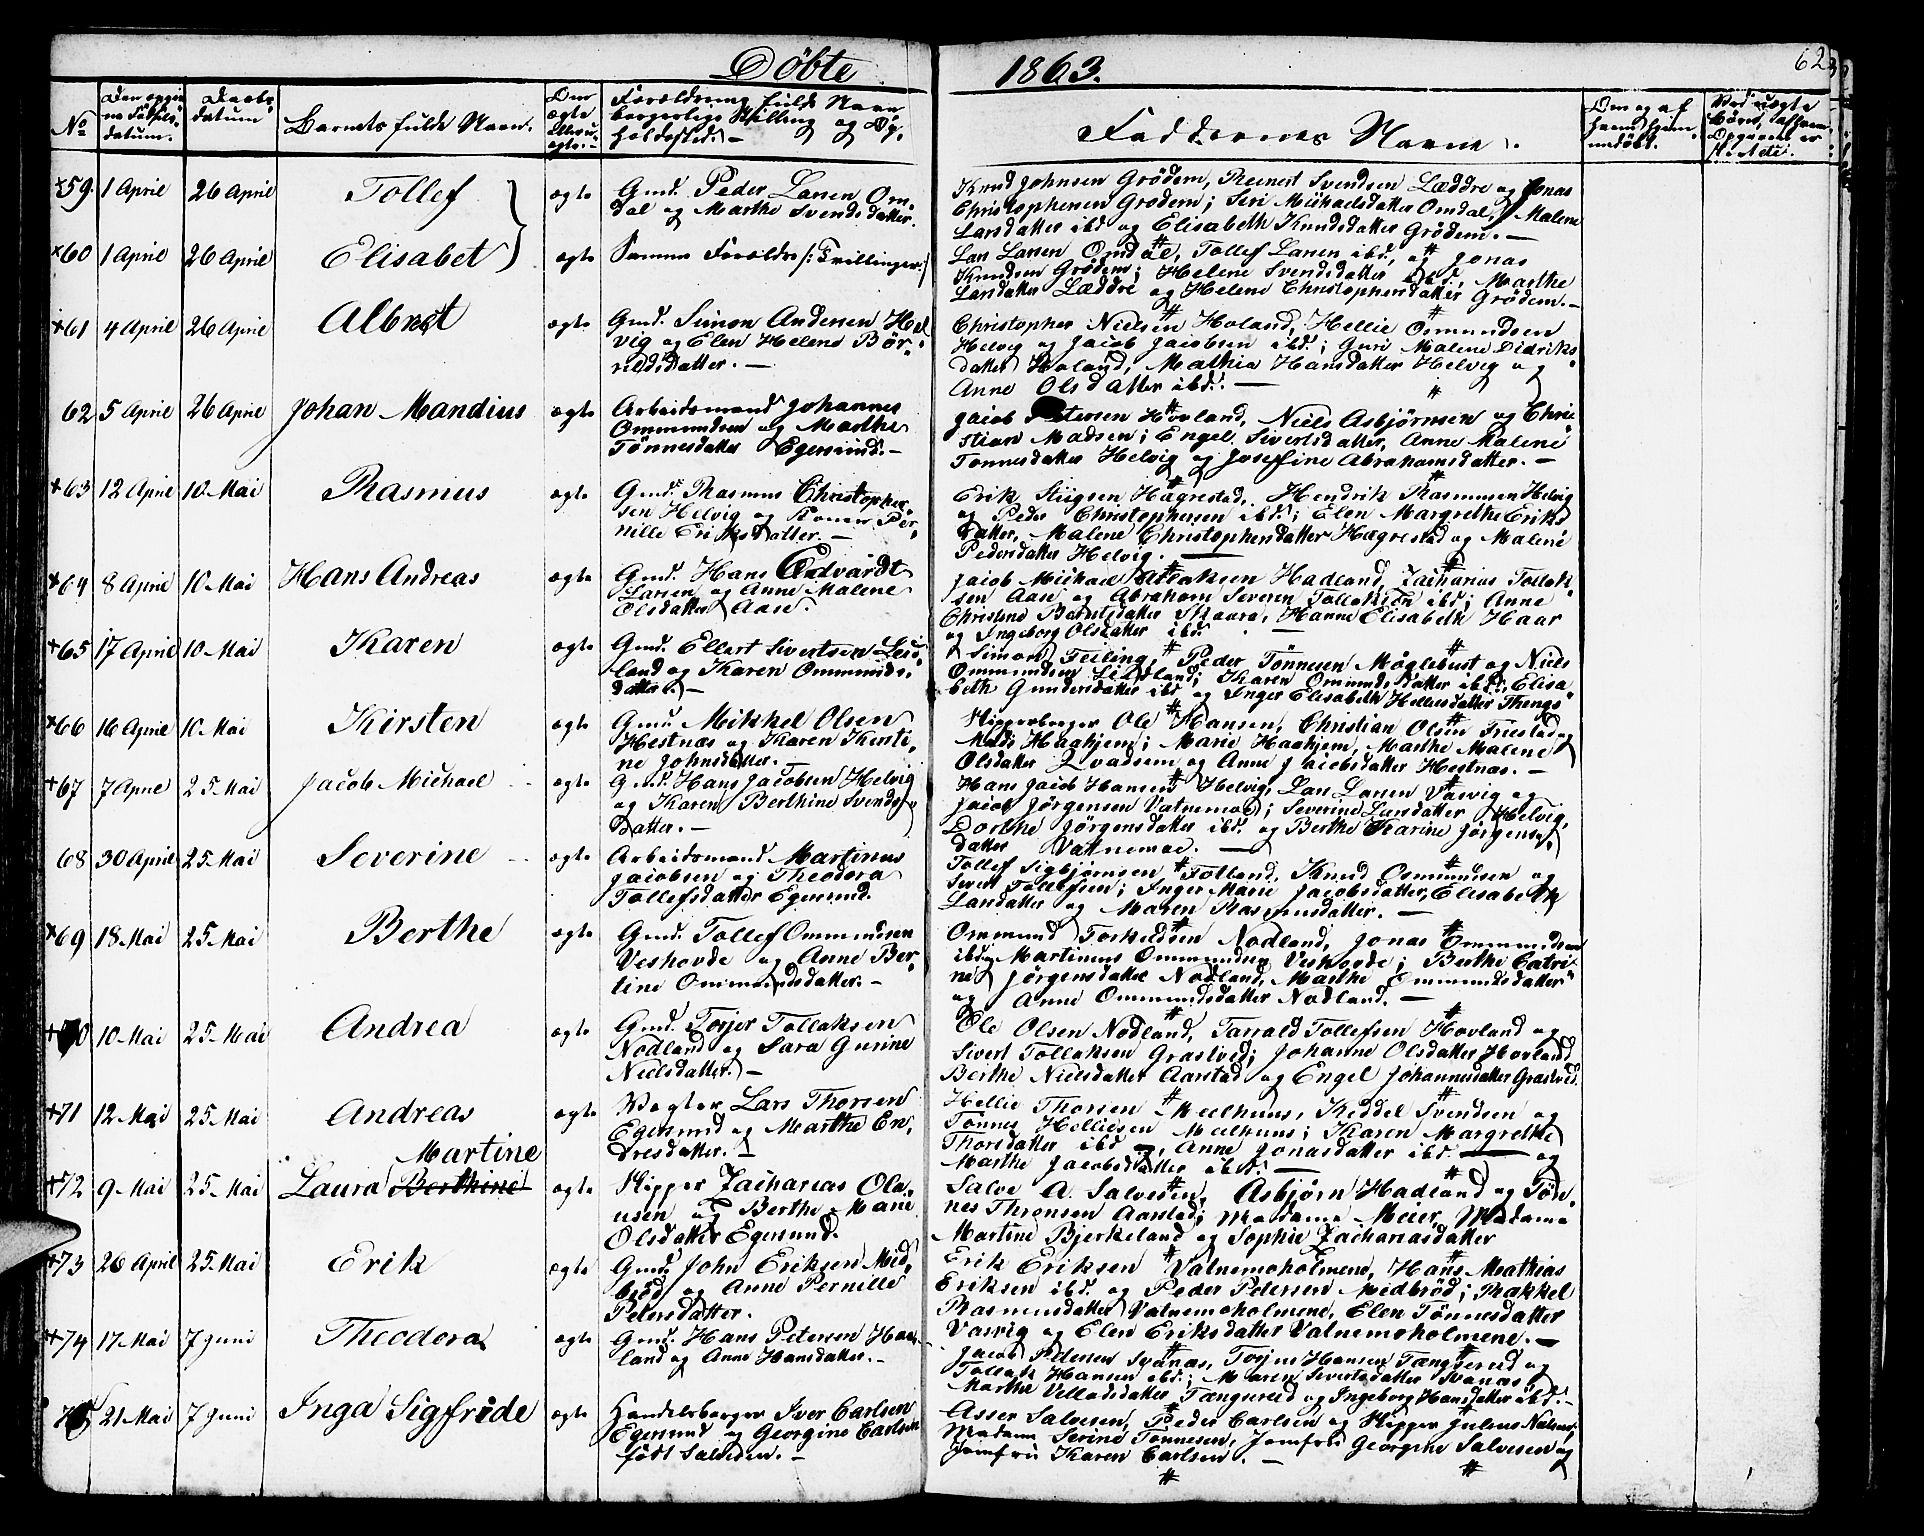 Döbte 1863.
62
No
Barnets fulde Navn.
Faddernes Navne.
59. 1 April 26 April Tollef ægte Gmd. Peder Larsen Om-
dal og Marthe Svendsdatter.
Knud Johnsen Grödem, Reinert Svendsen Læddre og Jonas
Christophersen Grödem; Seri Michaelsdatter Omdal, Malene
Larsdatter ibd og Elisabeth Knudsdatter Grödem. —
60 1 April 26 April Elisabet ægte Samme Forældre /: Tvillinger :/
Lars Larsen Omdal, Tollef Larsen ibd, og Jonas
Knudsen Grödem; Helene Svendsdatter ibd, Marthe
Larsdatter Læddre og Helene Christophersdatter Grödem. —
61 4 April 26 April Albret ægte Gmd. Simon Andersen Hel-
vig og Elen Helene Bör-
rildsdatter. —
Christopher Nielsen Holand, Hellie Osmundsen
Helvig og Jacob Jacobsen ibd; Guri Malene Didriks-
datter Holand, Mathia Hansdatter Helvig og
Anne Olsdatter ibd. —
62 5 April 26 April Johan Mandius ægte Arbeidsmand Johannes
Ommundsen og Marthe
Tönnesdatter Egersund. —
Jacob Petersen Hovland, Niels Asbjörnsen og Chri-
stian Madsen; Engel Sivertsdatter, Anne Malene
Tonnesdatter Helvig og Josefine Abrahamsdatter. —
63 12 April 10 Mai Rasmus ægte Gmd. Rasmus Christopher-
sen Helvig og Kone Per-
nille Eriksdatter. —
Erik Stiigsen Hægrestad, Hendrik Rasmussen Helvig
og Peder Christophersen ibd; Elen Margrethe Eriks-
datter, Malene Christophersdatter Hægrestad og Malene
Pedersdatter Helvig. —
64 8 April 10 Mai Hans Andreas ægte Gmd. Hans Edvardt
Larsen og Anne Malene
Olsdatter Aase.
Jacob Michael Isaksen Hadland, Zacharias Tollak-
sen Aase og Abraham Severin Tollaksen ibd; Anne
Christine Berntsdatter Skaara, Hanne Elisabeth Haar
og Ingeborg Olsdatter ibd. —
65 17 April 10 Mai Karen ægte Gmd. Ellert Sivertsen Leid-
land og Karen Ommunds-
datter. —
Simon Feiling, Peder Tönnesen Möglebust og Niels
Ommundsen Leidland; Karen Ommundsdatter ibd, Elisa-
beth Gundersdatter ibd og Inger Elisabeth Helliesdatter Thengs
66 16 April 10 Mai Kirsten ægte Gmd. Mikkel Olsen
Hestnæs og Karen Kirsti-
ne Johnsdatter. —
Skipperborger Ole Hansen, Christian Olsen Friestad og
Mads Haahjem; Marie Haahjem, Marthe Malene
Olsdatter og Anne Jacobsdatter Hestnæs. —
67 7 April 25 Mai Jacob Michael ægte Gmd. Hans Jacobsen Helvig
og Karen Berthine Svends-
datter. —
Hans Jacob Hansen Helvig, Lars Larsen Varvig og
Jacob Jörgensen Vatnemoe; Severine Larsdatter Helvig,
Dorthe Jörgensdatter ibd. og Berthe Karine Jörgens-
datter Vatnemoe. —
68 30 April 25 Mai Severine ægte Arbeidsmand Martinus
Jacobsen og Theodora
Tollefsdatter Egersund.
Tollef Sigbjörnsen Folland, Knud Osmundsen og
Sivert Tollefsen; Inger Marie Jacobsdatter, Elisabeth
Larsdatter og Maren Rasmusdatter. —
69 18 Mai 25 Mai Berthe ægte Gmd. Tollef Ommundsen
Veshovde og Anne Ber-
tine Ommundsdatter. —
Ommund Torkildsen Nodland, Jonas Ommundsen
ibd. Martinus Ommundsen Veshovde; Berthe Catri-
ne Jörgensdatter Nodland, Marthe Ommundsdatter
og Anne Ommundsdatter Nodland. —
70 10 Mai 25 Mai Andrea ægte Gmd. Torjer Tollaksen
Nodland og Sara Gurine
Nielsdatter. —
Ole Olsen Nodland, Tarrald Tollefsen Hovland og
Sivert Tollaksen Grastveit; Johanne Olsdatter Hovland
Berthe Nielsdatter Aarstad og Engel Johannesdatter Grastveit.
71 12 Mai 25 Mai Andreas ægte Vægter Lars Thorsen
Egersund og Marthe En-
dresdatter. —
Hellie Thorsen Mælhuus, Keddel Svendsen og
Tönnes Helliesen Mælhuus; Karen Margrethe
Thorsdatter ibd, Anne Jonasdatter ibd. — og
Marthe Jacobsdatter ibd. —
72 9 Mai 25 Mai Laura Martine Berthine ægte Skipper Zacharias Ola-
usen og Berthe Marie
Olsdatter Egersund.
Salve A. Salvesen, Asbjörn Hadland og Tön-
nes Thronsen Aarstad; Madame Meier, Madame
Martine Bjerkeland og Sophie Zachariasdatter
73 26 April 25 Mai Erik ægte Gmd. John Eriksen Mid-
bröd og Anne Pernille
Petersdatter.
Erik Eriksen Vatnemoholmene, Hans Mathias
Eriksen ibd. og Peder Petersen Medbröd; Rakkel
Rasmusdatter Vatnemoholmene, Elen Tönnesdatter
Varvig og Elen Eriksdatter Vatnemoholmene. —
74 17 Mai 7 Juni Theodora ægte Gmd. Hans Petersen Haa-
land og Anne Hansdatter. —
Jacob Pedersen Svanæs, Torjus Hansen Tængsereid og
Tollak Hansen ibd; Maren Sivertsdatter Svanæs,
Marthe Villadsdatter Tængsereid og Ingeborg Hansdatter ibd. —
75 21 Mai 7 Juni Inga Sigfride ægte Handelsborger Iver Carlsen
Egersund og Georgine Carlsen
födt Salvesen. —
Asser Salvesen, Peder Carlsen og Skipper Julius Nilsen;
Madame Serine Tönnesen, Jomfru Georgine Salvesen og
Jomfru Karen Carlsen. —